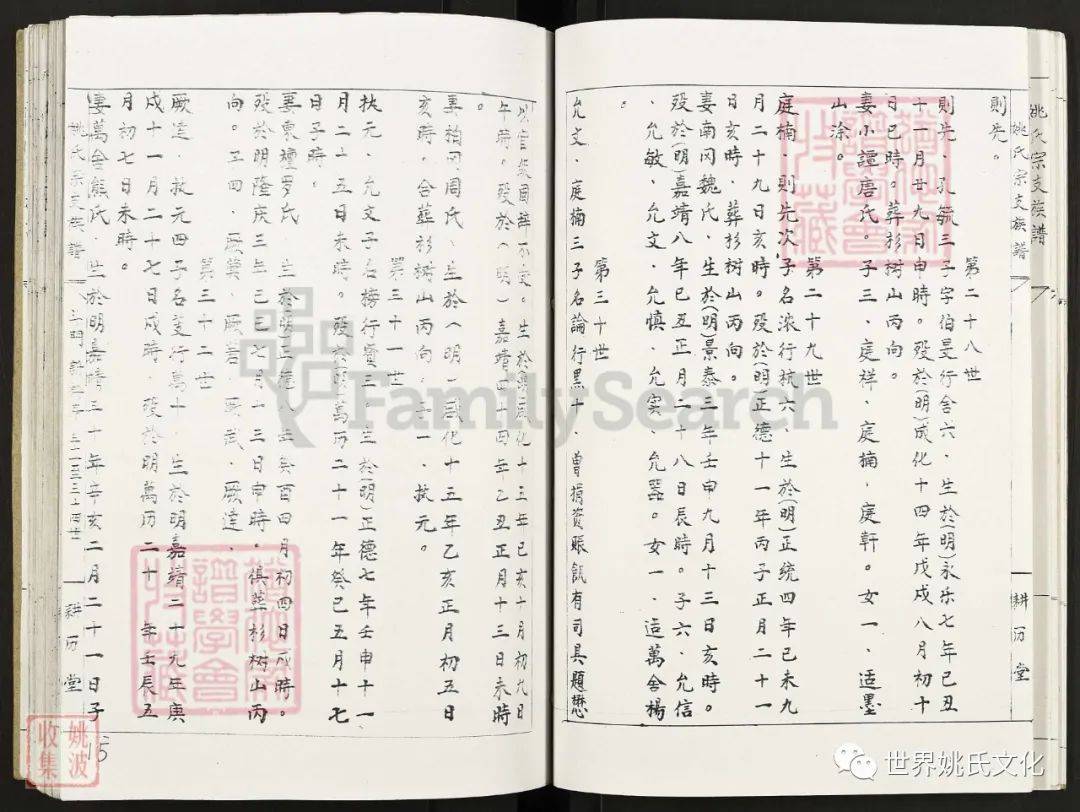 姚氏宗支族譜
姚氏宗支族譜
耕历堂
則先。
第二十八世
則先、孔毓三子字伯旻行舍六、生於(明)永乐七年己丑
十一月廿九日申時。殁於(明)成化十四年戊戌八月初十
日巳時。葬杉树山丙向。
妻小譚唐氏。子三、庭祥、庭楠、庭軒。女一、适墨
山涂。
第二十九世
庭楠、則先次子名浓行抗六、生於(明)正统四年己未九
月二十九日亥時。殁於(明)正德十一年丙子正月二十一
日亥時、葬杉树山丙向。
妻南冈魏氏、生於(明)景泰三年壬申九月十三日亥時。
殁於(明)嘉靖八年己丑正月二十八日辰時。子六、允信
、允敏、允文、允慎、允实、允器。女一、适萬舍楊
。
第三十世
允文、庭楠三子名論行黑十、曾捐资賑飢有司具題懋
官 不受。生於 成化十五年己亥十月初九日
午時。殁於(明)嘉靖四十四年乙丑正月十三日未時
。
妻柏冈周氏、生於(明)成化十五年乙亥正月初五日
亥時。合葬杉树山丙向。子一、扶元。
第三十一世
扶元、允文子名榜行寳三。生於(明)正德七年壬申十一
月二十五日未時。殁於(明)萬历二十一年癸巳五月十七
日子時。
妻東壇罗氏、生於(明)正德八年癸酉四月初四日戌時。
殁於明隆庆三年己巳七月十三日申時。俱葬杉树山丙
向。子四、厥 、厥 、厥武、厥逵、
第三十二世
厥逵、扶元四子名 行萬十、生於明嘉靖二十九年庚
戌十一月二十七日戌時、殁於明萬历二十年壬辰五
月初七日未時。
妻萬舍熊氏、生於明嘉靖三十年辛亥二月二十一日子
姚氏宗支族譜
耕历堂
15
姚波收集
FamilySearch
世界姚氏文化